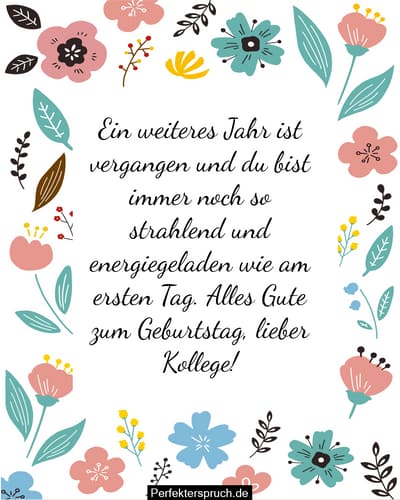 Ein weiteres Jahr ist
vergangen und du bist
immer noch so
strahlend und
energiegeladen wie am
ersten Tag. Alles Gute
zum Geburtstag, lieber
Kollege!
Perfekterspruch.de